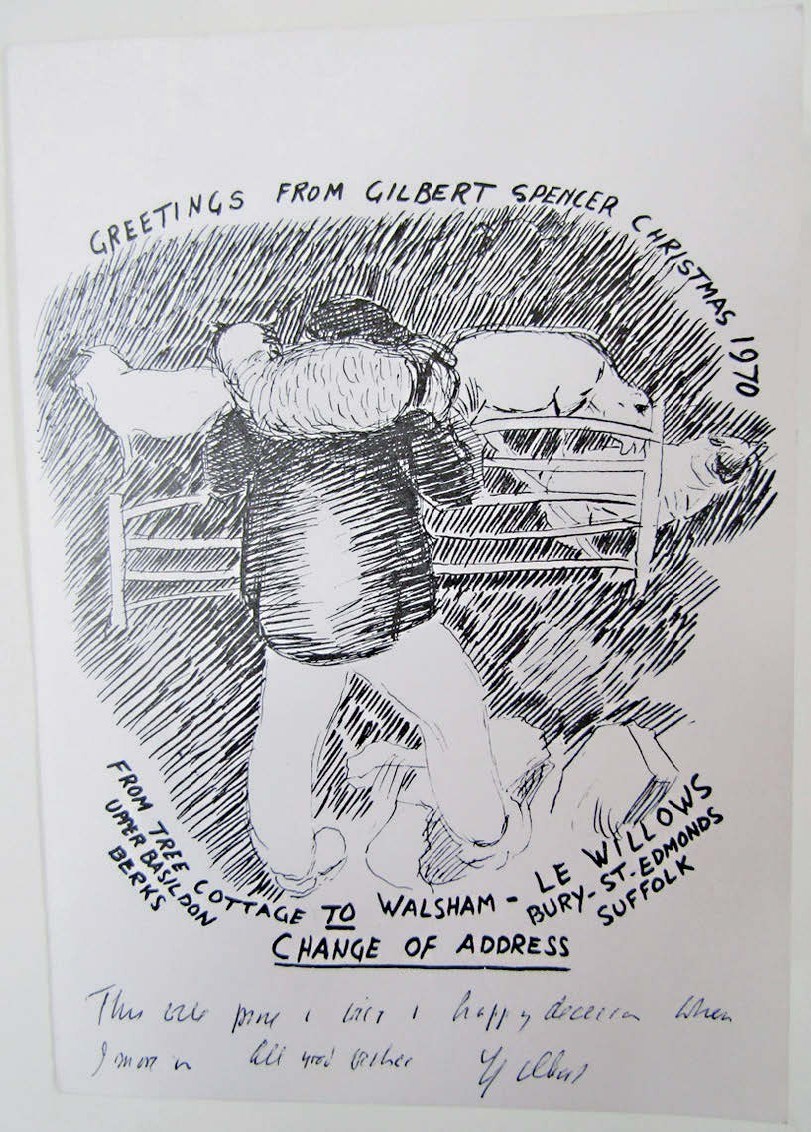 GREETINGS FROM GILBERT SPENCER CHRISTMAS 1970
FROM TREE COTTAGE TO WALSHAM - LE WILLOWS
UPPER BASILDON
BERKS
BURY-ST-EDMONDS
SUFFOLK
CHANGE OF ADDRESS
This happy decision when
I move in All good wishes